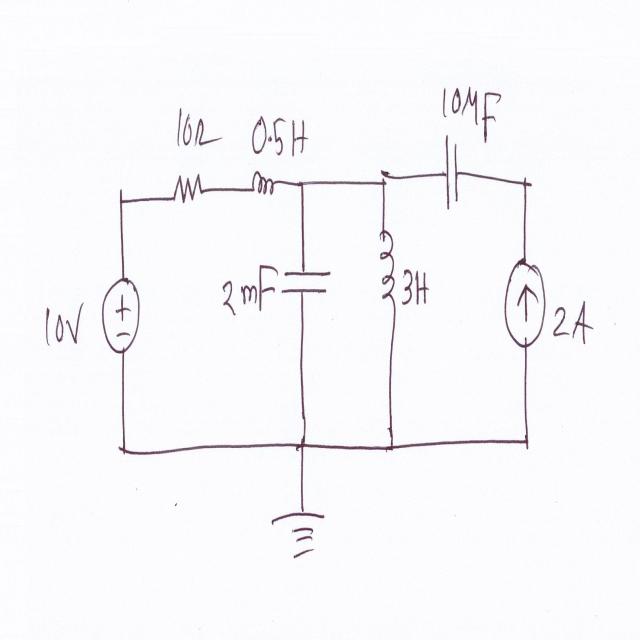 10Ω 0.5H 10MF
2mF 3H
10V + - 2A